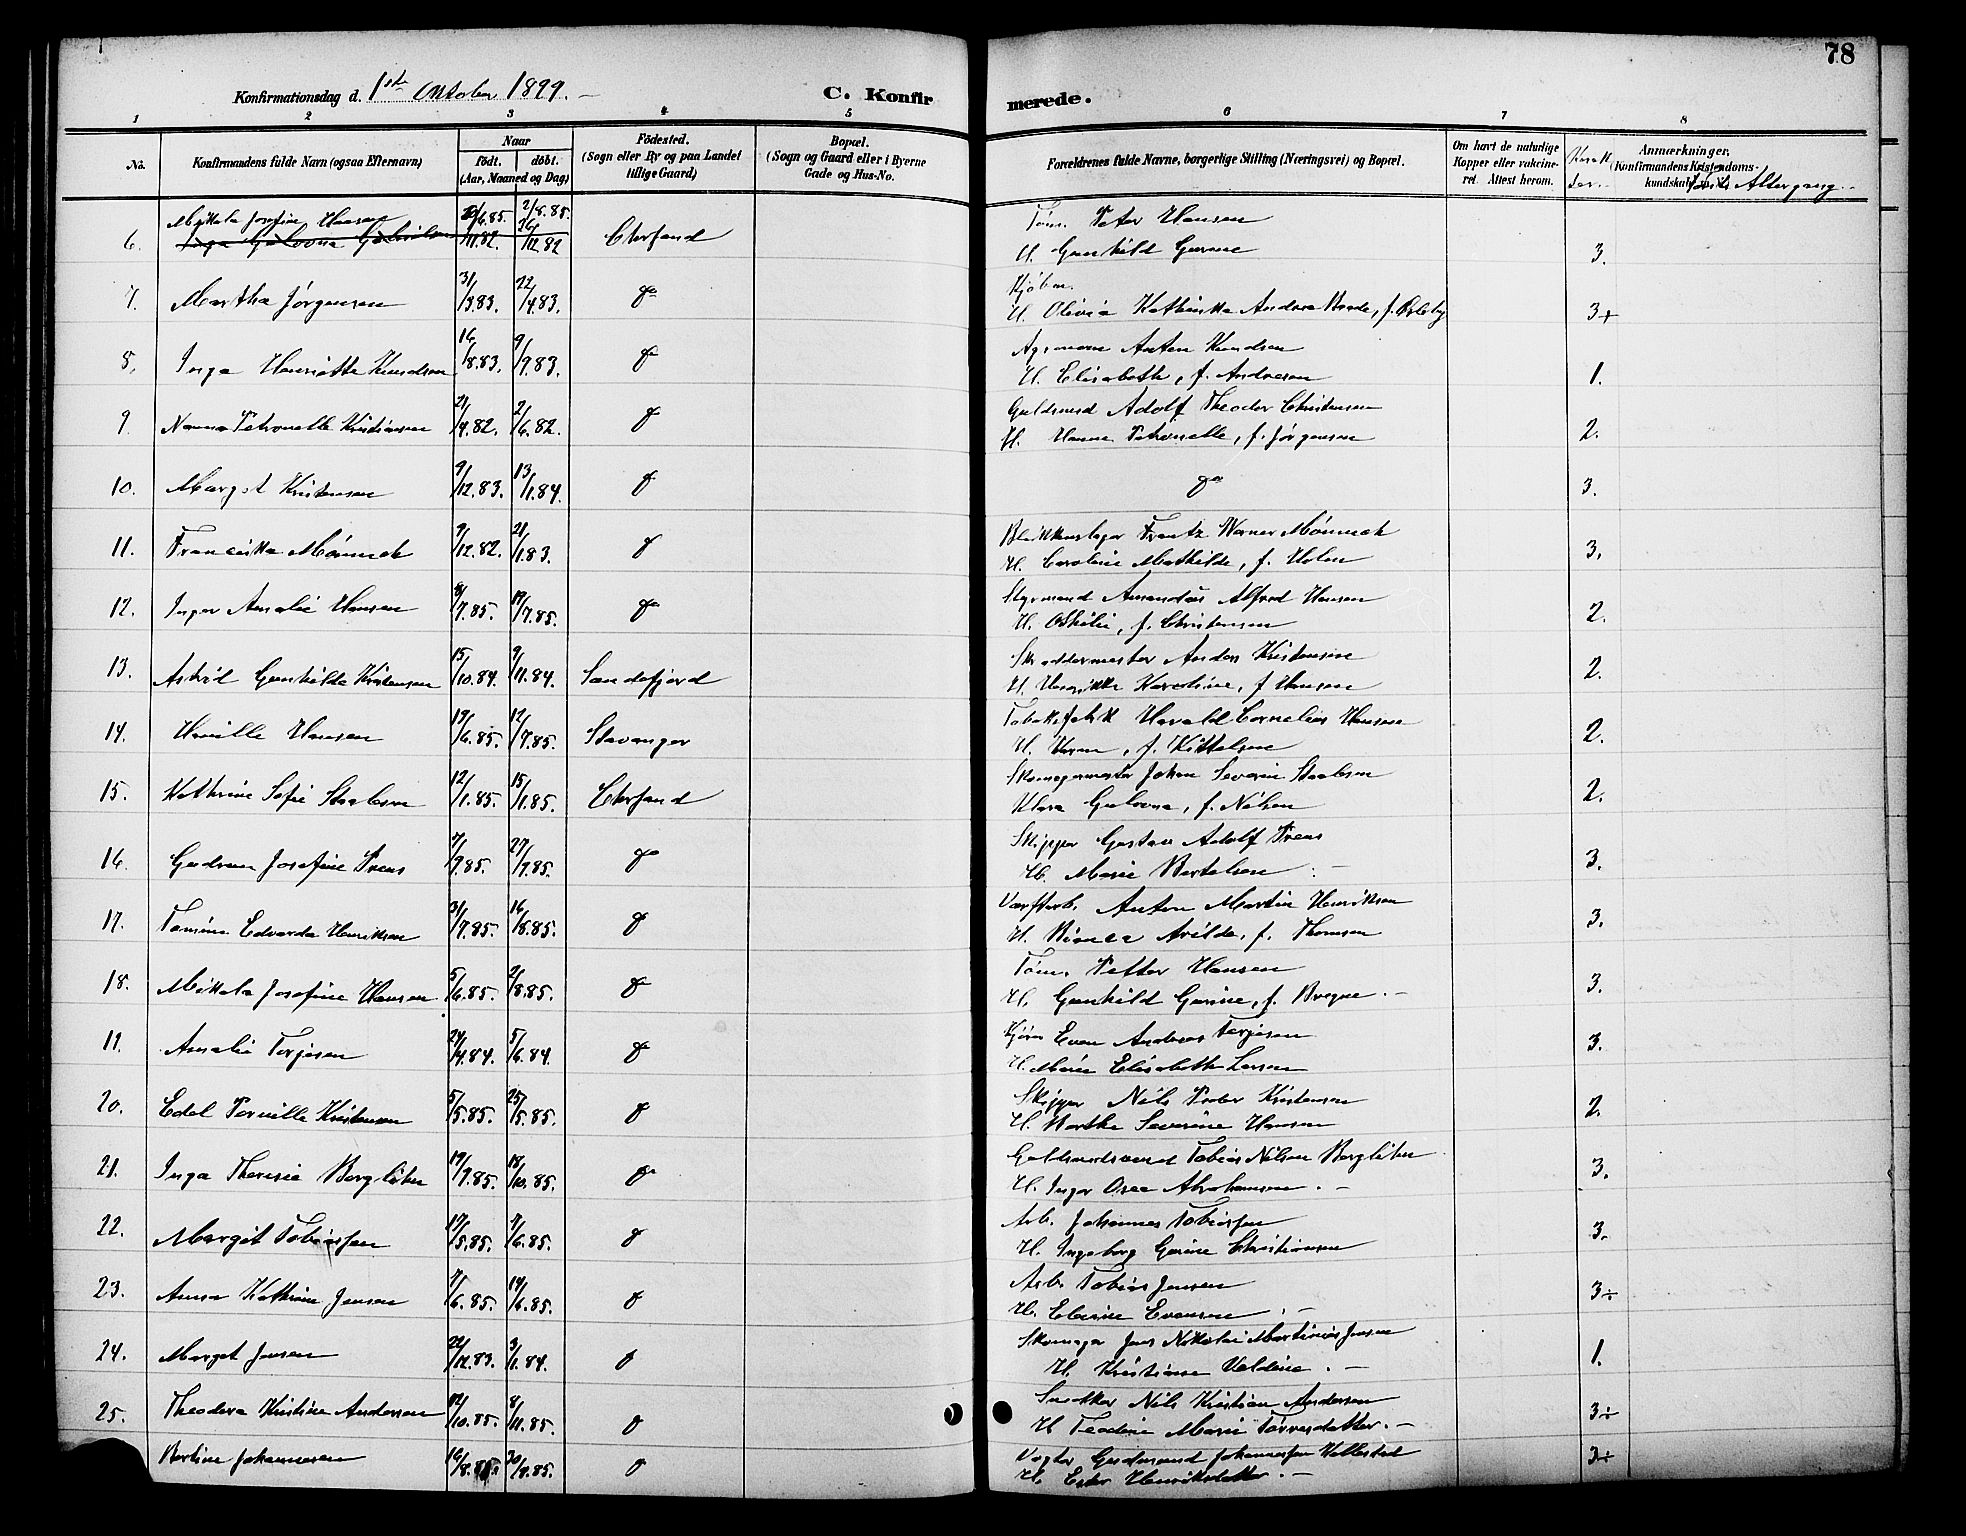 78
Konfirmationsdag d. 1ste Oktober 1899. –
C. Konfir
merede.
1 2 3 4 5 6 7 8
No. Konfirmandens fulde Navn (ogsaa Efternavn) Naar födt. döbt. (Aar, Maaned og Dag) Födested. (Sogn eller By og paa Landet tillige Gaard) Bopæl. (Sogn og Gaard eller i Byerne Gade og Hus-No.
Forældrenes fulde Navne, borgerlige Stilling (Næringsvei) og Bopæl. Om havt de naturlige Kopper eller vakcineret. Attest herom. Anmærkninger, (Konfirmandens Kristendomskundskab Altergang.
Mikala Josefine Hansen /6.85. 2/8.85. Töm. Peter Hansen
6. /11.82. 26/12.82 Chrsand H. Gunhild Gurine 3.
Kjöbm.
7. Martha Jörgensen 31/3.83. 22/4.83. do H. Olivia Kathinka Andrea 3+
Agronom Anton Knudsen
8. Inga Henriette Knudsen 16/8.83. 9/9.83. do H. Elisabeth, f. Andresen 1.
Guldsmed Adolf Theodor Christensen
9. Nanna Petronelle Kristensen 21/4.82. 2/6.82. do H. Hanne Petronelle, f. Jörgensen 2.
10. Margit Kristensen 9/12.83. 13/1.84. do do 3.
Blikkenslager Frantz Werner Mönnich
11. Franciska Mönnich 9/12.82. 21/1.83. do H. Caroline Mathilde, f. Holm 3.
Styrmand Amandus Alfred Hansen
12. Inger Amalie Hansen /7.85. 19/7.85. do H. Othilie, f. Christensen 2.
Skreddermester Anders Kristensen
13. Astrid Gunhilda Kristensen 15/10.84. 9/11.84. Sandefjord H. Henrikke Karoline, f. Hansen 2.
Harald Cornelius Hansen
14. Hansen 19/6.85. 12/7.85. Stavanger H. f. Kittelsen 2.
Skomagermester Johan Severin Staalesen
15. Kathrine Sofie Staalesen 12/1.85. 15/1.85. Chrsand Gulovna, f. Nilsen 2.
Skipper Gustav Adolf Preus
16. Gudrun Josefine Preus 7/9.85. 27/9.85. do H. Marie Bertelsen. – 3.
Værftarb. Anton Martin Henriksen
17. Tomine Edvarda Henriksen 31/7.85. 16/8.85. do H. Arilda, f. Thomsen 3.
Töm. Petter Hansen
18. Mikala Josefine Hansen 5/6.85. 2/8.85. do H. Gunhild Gurine, f. – 3.
Even Andreas Terjesen
19. Amalie Terjesen 24/4.84. 5/6.84. do H. Marie Elisabeth Larsen 3.
Skipper Nils Peder Kristensen
20. Edel Pernille Kristensen 5/5.85. 25/5.85. do H. Marthe Severine Hansen 2.
Tobias Nilsen Bergliten
21. Inga Theresie Bergliten 19/9.85. 18/10.85. do H. Inger Abrahamsen. – 3.
Arb. Johannes Tobiassen
22. Margit Tobiassen 17/5.85. 7/6.85. do H. Ingeborg Gurine Christiansen 3.
Arb. Tobias Jensen
23. Anna Kathrine Jensen 7/6.85. 14/6.85. do H. Elerine Evensen. – 3÷
Skomager Jens Nikolai Martinius Jensen
24. Margit Jensen 22/12.83. 3/1.84. do H. Kristiane Valdine. – 1.
Snekker Nils Kristian Andersen
25. Theodora Kristine Andersen /10.85. 8/11.85. do H. Teodine Marie – 3÷
Johannessen
Bertine Johannesen 16/8.85. 30/8.85. do H. Ester Henriksdatter. – 3÷